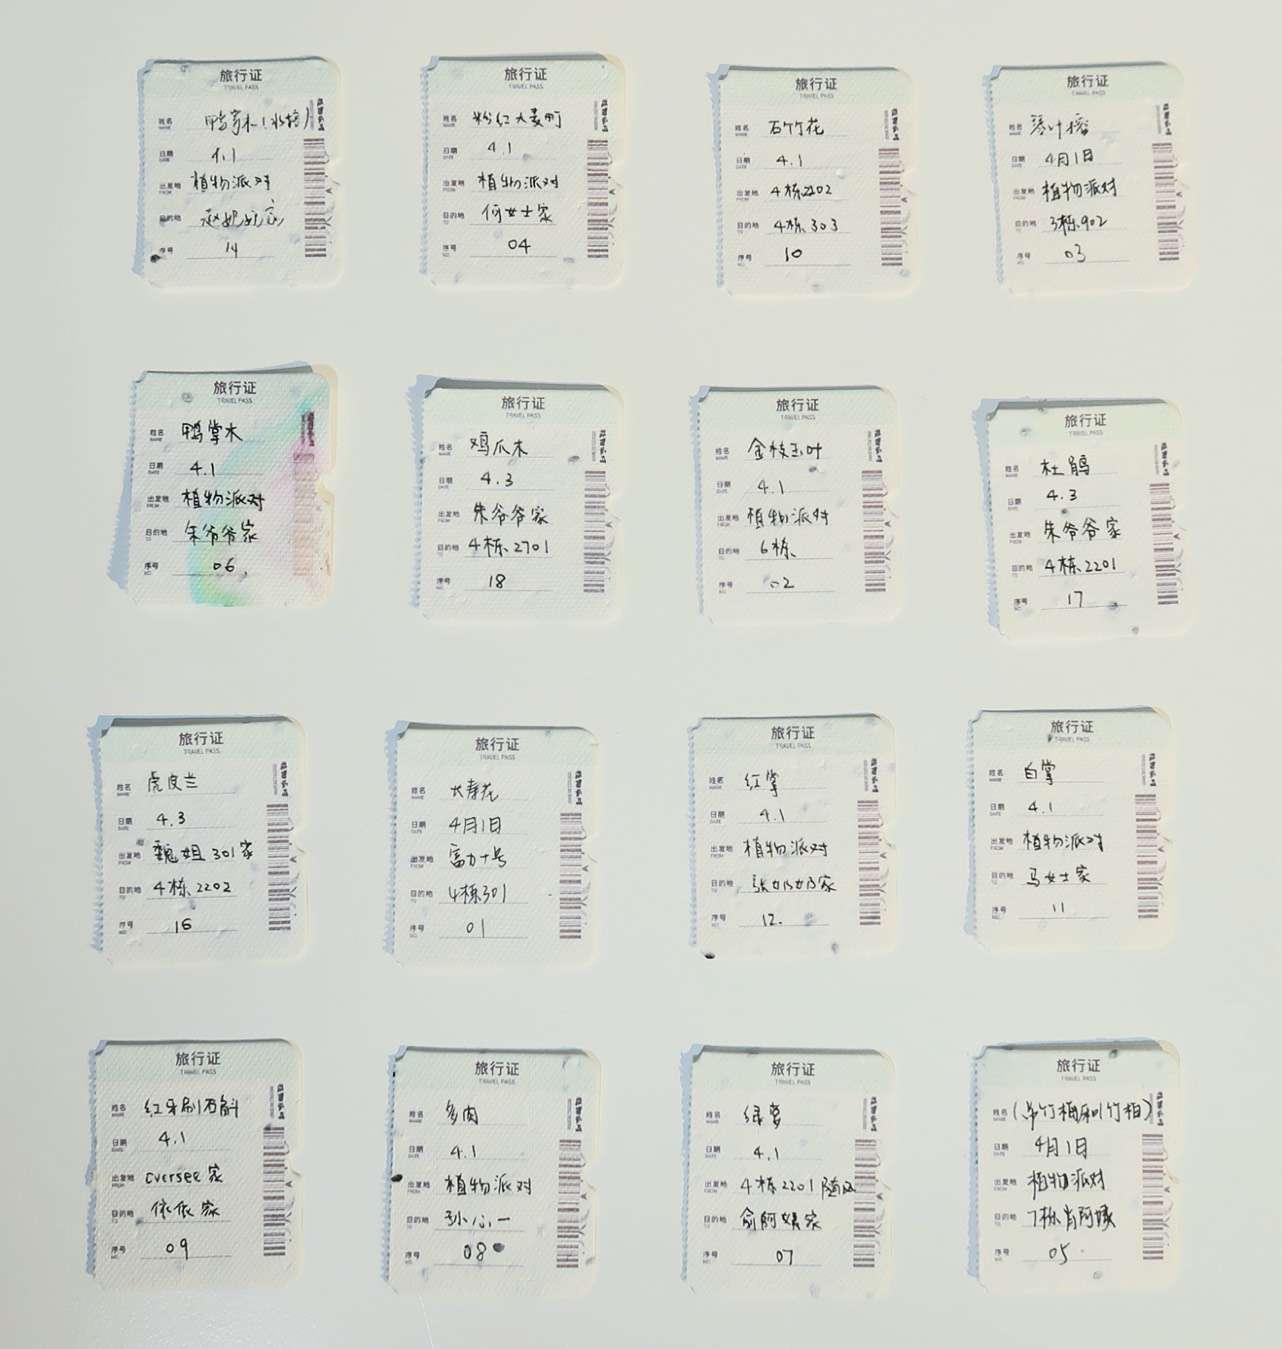 旅行证
TRAVEL PASS
姓名 NAME 鸭掌木(水培)
日期 DATE 4.1
出发地 FROM 植物派对
目的地 TO 赵妮妮家
序号 NO. 14
旅行证
TRAVEL PASS
姓名 NAME 粉红大菱町
日期 DATE 4.1
出发地 FROM 植物派对
目的地 TO 何女士家
序号 NO. 04
旅行证
TRAVEL PASS
姓名 NAME 石竹花
日期 DATE 4.1
出发地 FROM 4栋2202
目的地 TO 4栋303
序号 NO. 10
旅行证
TRAVEL PASS
姓名 NAME 琴叶榕
日期 DATE 4月1日
出发地 FROM 植物派对
目的地 TO 3栋902
序号 NO. 03
旅行证
TRAVEL PASS
姓名 NAME 鸭掌木
日期 DATE 4.1
出发地 FROM 植物派对
目的地 TO 朱爷爷家
序号 NO. 06
旅行证
TRAVEL PASS
姓名 NAME 鸡爪木
日期 DATE 4.3
出发地 FROM 朱爷爷家
目的地 TO 4栋2701
序号 NO. 18
旅行证
TRAVEL PASS
姓名 NAME 金枝玉叶
日期 DATE 4.1
出发地 FROM 植物派对
目的地 TO 6栋
序号 NO. 02
旅行证
TRAVEL PASS
姓名 NAME 杜鹃
日期 DATE 4.3
出发地 FROM 朱爷爷家
目的地 TO 4栋2201
序号 NO. 17
旅行证
TRAVEL PASS
姓名 NAME 虎皮兰
日期 DATE 4.3
出发地 FROM 魏姐301家
目的地 TO 4栋2202
序号 NO. 16
旅行证
TRAVEL PASS
姓名 NAME 长寿花
日期 DATE 4月1日
出发地 FROM 富力十号
目的地 TO 4栋301
序号 NO. 01
旅行证
TRAVEL PASS
姓名 NAME 红掌
日期 DATE 4.1
出发地 FROM 植物派对
目的地 TO 张奶奶家
序号 NO. 12.
旅行证
TRAVEL PASS
姓名 NAME 白掌
日期 DATE 4.1
出发地 FROM 植物派对
目的地 TO 马女士家
序号 NO. 11
旅行证
TRAVEL PASS
姓名 NAME 红牙刷石斛
日期 DATE 4.1
出发地 FROM oversee家
目的地 TO 依依家
序号 NO. 09
旅行证
TRAVEL PASS
姓名 NAME 多肉
日期 DATE 4.1
出发地 FROM 植物派对
目的地 TO 孙心一
序号 NO. 08
旅行证
TRAVEL PASS
姓名 NAME 绿萝
日期 DATE 4.1
出发地 FROM 4栋2201随风
目的地 TO 俞阿姨家
序号 NO. 07
旅行证
TRAVEL PASS
姓名 NAME 竹柏)
日期 DATE 4月1日
出发地 FROM 植物派对
目的地 TO 7栋肖阿姨
序号 NO. 05